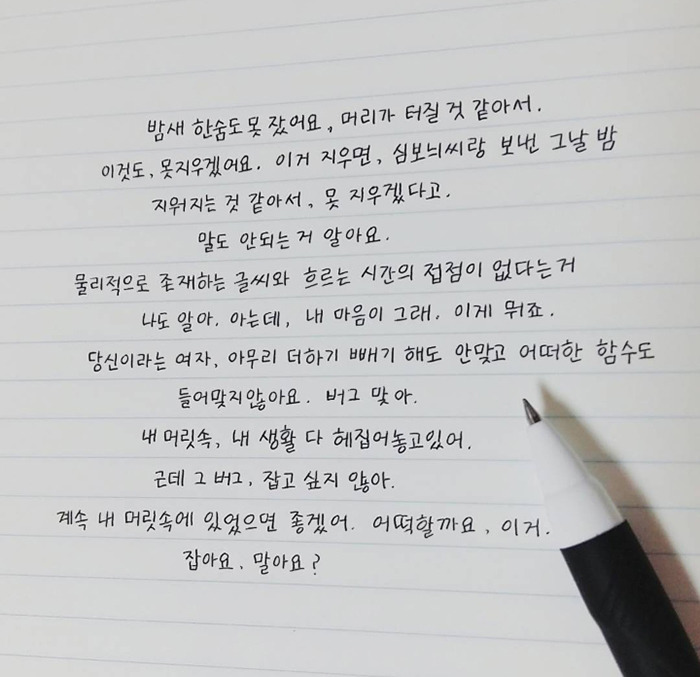 밤새 한숨도 못 잤어요, 머리가 터질 것 같아서.
이것도, 못지우겠어요. 이거 지우면, 심보늬씨랑 보낸 그날 밤
지워지는 것 같아서, 못 지우겠다고.
말도 안되는 거 알아요.
물리적으로 존재하는 글씨와 흐르는 시간의 접점이 없다는거
나도 알아. 아는데, 내 마음이 그래. 이게 뭐죠.
당신이라는 여자, 아무리 더하기 빼기 해도 안맞고 어떠한 함수도
들어맞지않아요. 버그 맞아.
내 머릿속, 내 생활 다 헤집어놓고있어.
근데 그 버그, 잡고 싶지 않아.
계속 내 머릿속에 있었으면 좋겠어. 어떡할까요, 이거.
잡아요, 말아요?